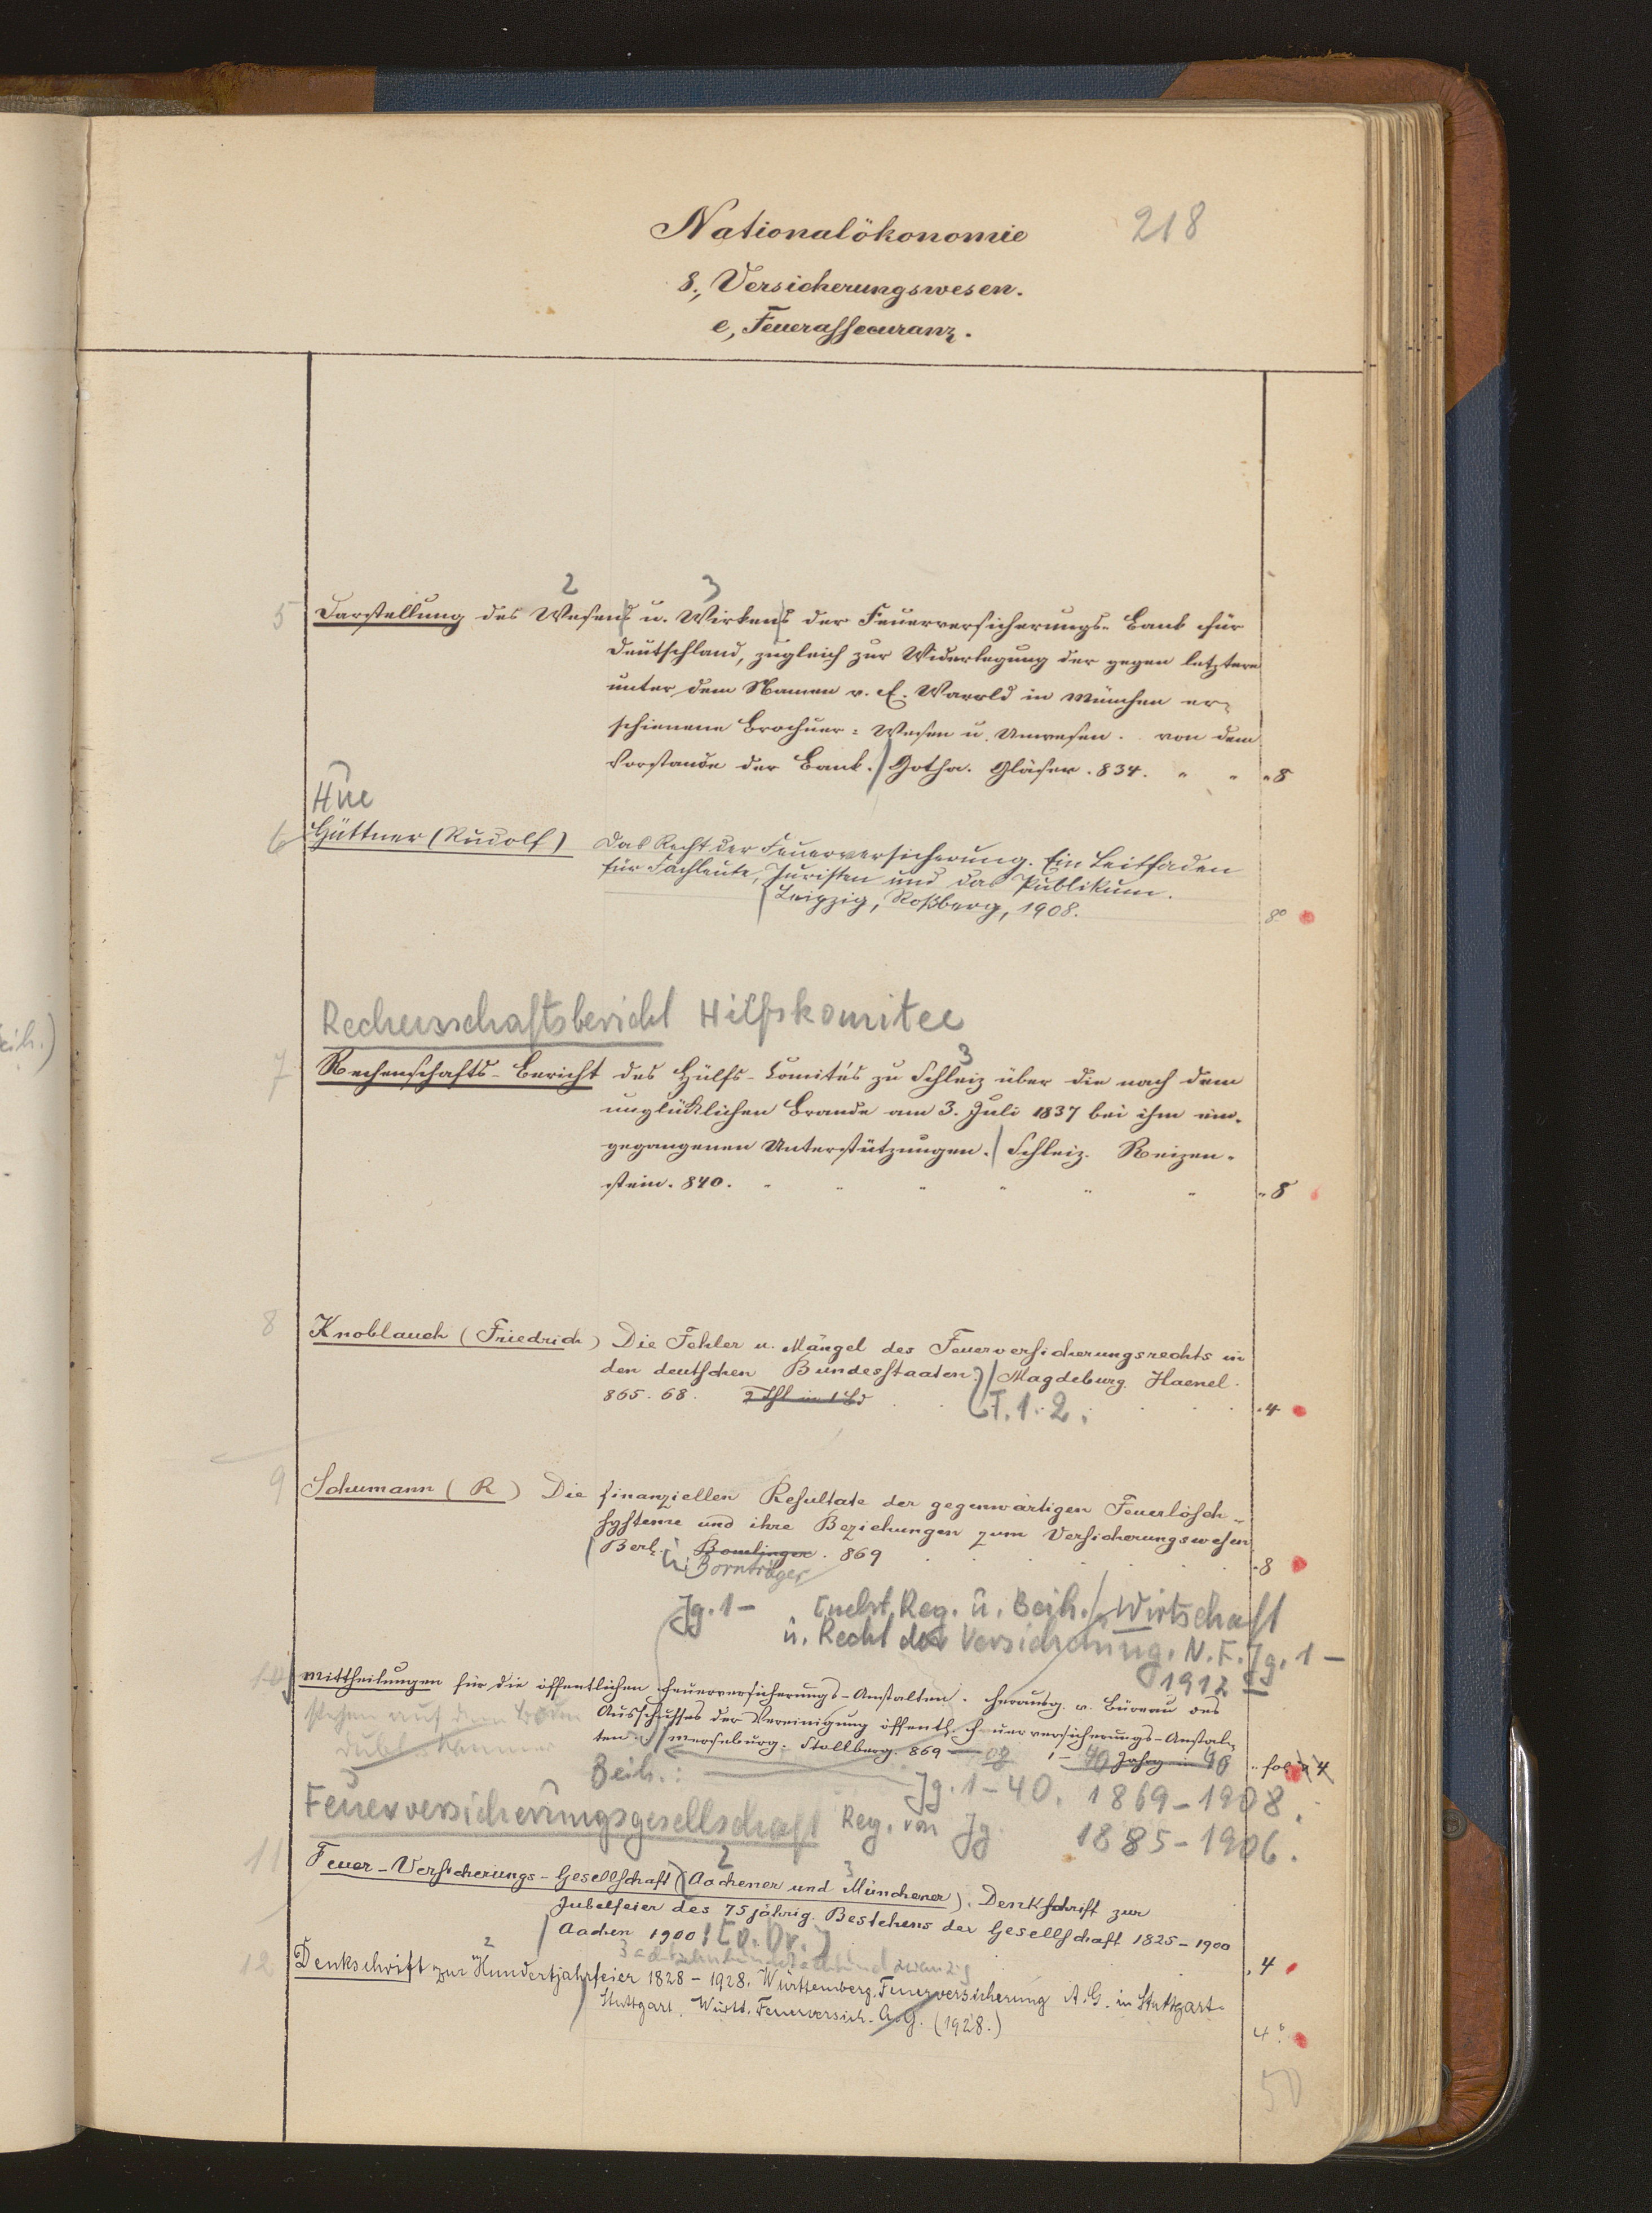 Nationalökonomie 218
8., Versicherungswesen.
e, Feuerassecuranz.
2 3
5 Darstellung des Wesens u. Wirkens der Feuerversicherungs-Bank für
Deutschland, zugleich zur Widerlegung der gegen letztere
unter dem Namen v. E. Warold in München er-
schienene Brochuer: Wesen u. Unwesen. von dem
Vorstande der Bank. Gotha. Gläser. 834. " " " 8
Hüe
6 Hüttner (Rudolf) Das Recht der Feuerversicherung. Ein Leitfaden
für Fachleute, Juristen und das Publikum.
Leipzig, Roßberg, 1908. 8°
Rechenschaftsbericht Hilfskomitee
3
7 Rechenschafts-Bericht des Hülfs-Comités zu Schleiz über die nach dem
unglücklichen Brande am 3. Juli 1837 bei ihm ein-
gegangenen Unterstützungen. Schleiz. Reizen-
stein. 840. " " " " " " " 8
8 Knoblauch (Friedrich) Die Fehler u. Mängel des Feuerversicherungsrechts in
den deutschen Bundesstaaten. Magdeburg. Haenel.
865. 68. 2 Thl in 1 Bd T. 1. 2. 4
9 Schumann (R) Die finanziellen Resultate der gegenwärtigen Feuerlösch-
systeme und ihre Beziehungen zum Versicherungswesen
Berl. 869 8
Bornträger
Jg. 1 - Reg. u. Beih. / Wirtschaft
u. Recht der Versicherung. N. F. Jg. 1 -
1912
10 Mittheilungen für die öffentlichen Feuerversicherungs-Anstalten. Herausg. v. Büreau des
stehen auf dem Boden Ausschusses der Vereinigung öffentl. Feuerversicherungs-Anstal-
ten. Merseburg. Stollberg. 869 — 08 1 - 40 Jahrg in 40 " fol 4
Beih.: Jg. 1-40. 1869-1908.
Feuerversicherungsgesellschaft Reg. von Jg. 1885-1906.
2 3
11 Feuer-Versicherungs-Gesellschaft (Aachener und Münchener). Denkschrift zur
Jubelfeier des 75jährig. Bestehens der Gesellschaft 1825-1900
Aachen 1900: [o. Dr.] 4
2 3 achtzehnhundertachtundzwanzig
12 Denkschrift zur Hundertjahrfeier 1828-1928. Württemberg. Feuerversicherung A.G. in Stuttgart.
Stuttgart, Württ. Feuerversich. A.G. (1928.) 4°.
50